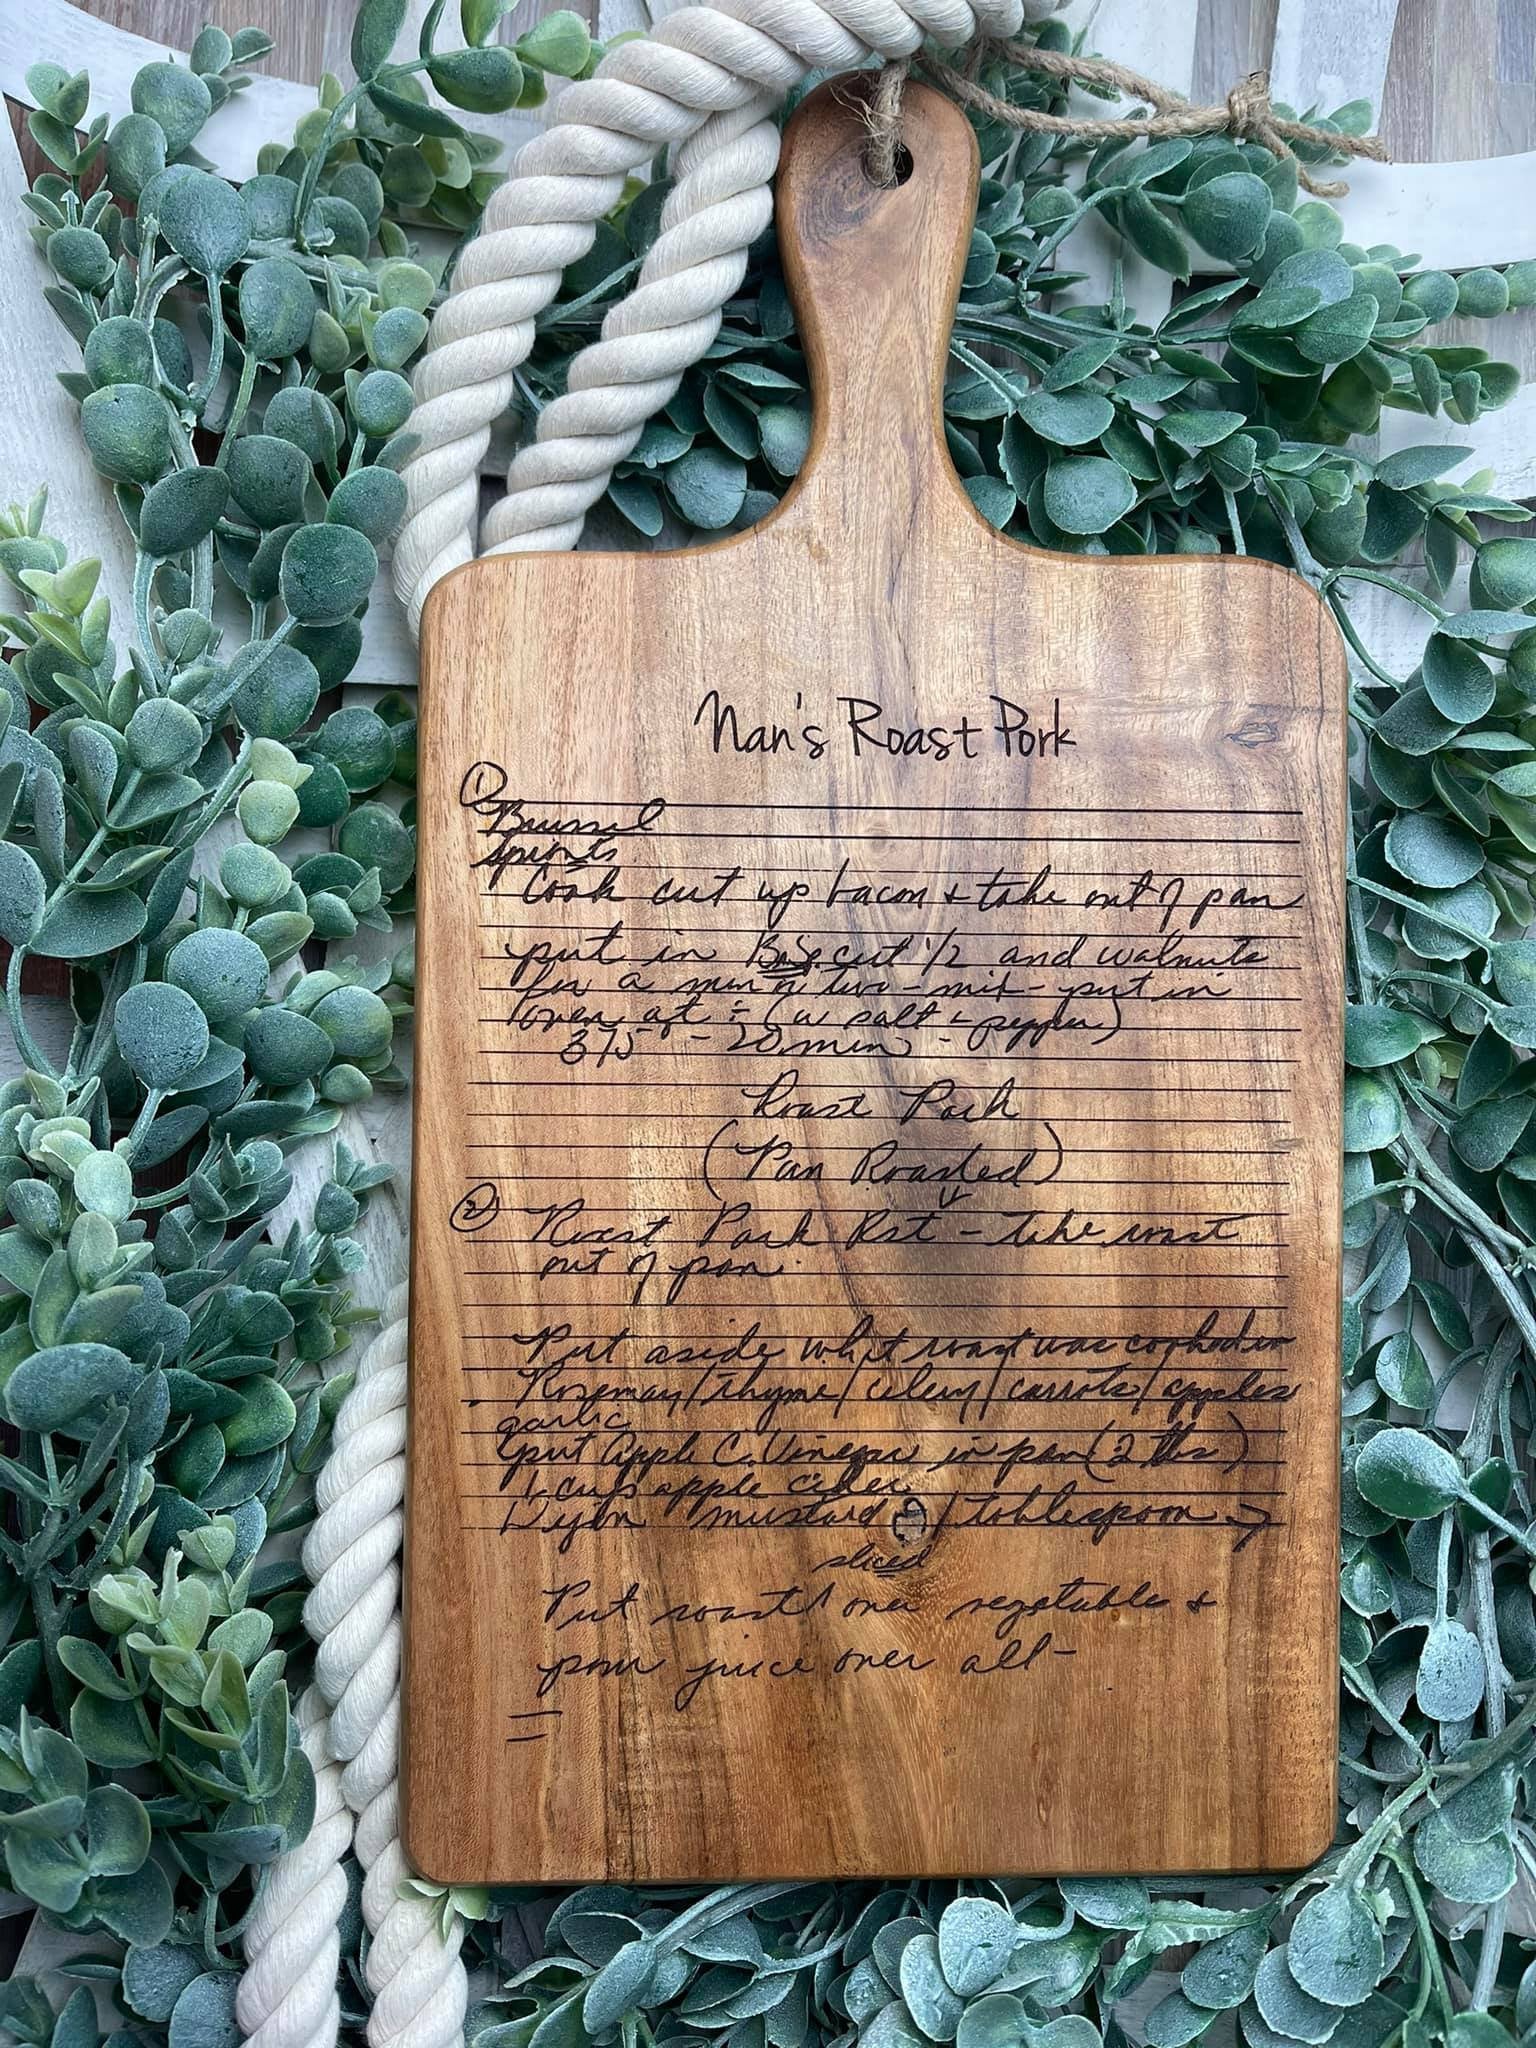 Nan's Roast Pork
1
Brussel
sprouts
Cook cut up bacon & take out of pan
put in B.S. cut 1/2 and walnuts
for a min or two - mix - put in
oven at : (w salt & pepper)
375° - 20 min -
Roast Pork
(Pan Roasted)
2 Roast Pork Rst - take roast
out of pan.
Put aside what roast was cooked in
Rosemary/thyme/celery/carrots/apples
garlic
put Apple C. Vinegar in pan (2 tbs)
1 cup apple cider
Dijon mustard 1 tablespoon →
sliced
Put roast over vegetable &
pour juice over all -